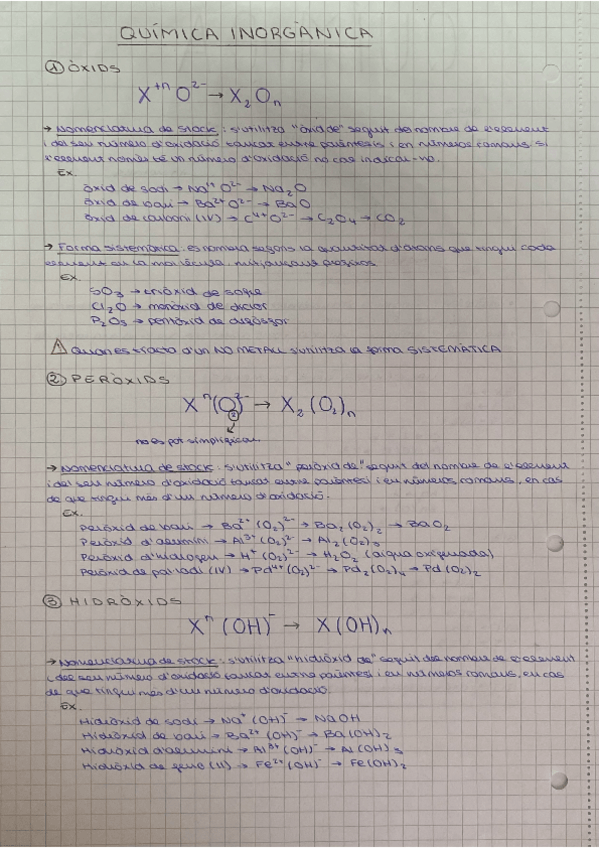 QUÍMICA INORGÀNICA
① ÒXIDS
X⁺ⁿ O²⁻ → X₂Oₙ
→ Nomenclatura de stock: s'utilitza "òxid de" seguit del nombre de l'element
i del seu número d'oxidació tancat entre parèntesis i en números romans si
l'element només té un número d'oxidació no cas indicar-ho.
Ex.
òxid de sodi → Na¹⁺ O²⁻ → Na₂O
òxid de bari → Ba²⁺ O²⁻ → BaO
òxid de carboni (IV) → C⁴⁺ O²⁻ → C₂O₄ → CO₂
→ Forma sistemàtica: es nomena segons la quantitat d'àtoms que tingui cada
element en la molècula, mitjançant prefixos
Ex.
SO₃ → triòxid de sofre
Cl₂O → monòxid de diclor
P₂O₅ → pentòxid de difòsfor
⚠ Quan es tracta d'un NO METALL s'utilitza la forma SISTEMÀTICA
② PERÒXIDS
Xⁿ(O₂)²⁻ → X₂(O₂)ₙ
no es pot simplificar
→ Nomenclatura de stock: s'utilitza "peròxid de" seguit del nombre de l'element
i del seu número d'oxidació tancat entre parèntesi i en números romans, en cas
de que tingui més d'un número d'oxidació.
Ex.
Peròxid de bari → Ba²⁺ (O₂)²⁻ → Ba₂(O₂)₂ → BaO₂
Peròxid d'alumini → Al³⁺ (O₂)²⁻ → Al₂(O₂)₃
Peròxid d'hidrogen → H⁺ (O₂)²⁻ → H₂O₂ (aigua oxigenada)
Peròxid de pal·ladi (IV) → Pd⁴⁺ (O₂)²⁻ → Pd₂(O₂)₄ → Pd(O₂)₂
③ HIDRÒXIDS
Xⁿ (OH)⁻ → X(OH)ₙ
→ Nomenclatura de stock: s'utilitza "hidròxid de" seguit del nombre de l'element
i del seu número d'oxidació tancat entre parèntesi i en números romans, en cas
de que tingui més d'un número d'oxidació.
Ex.
Hidròxid de sodi → Na⁺ (OH)⁻ → NaOH
Hidròxid de bari → Ba²⁺ (OH)⁻ → Ba(OH)₂
Hidròxid d'alumini → Al³⁺ (OH)⁻ → Al(OH)₃
Hidròxid de ferro (II) → Fe²⁺ (OH)⁻ → Fe(OH)₂